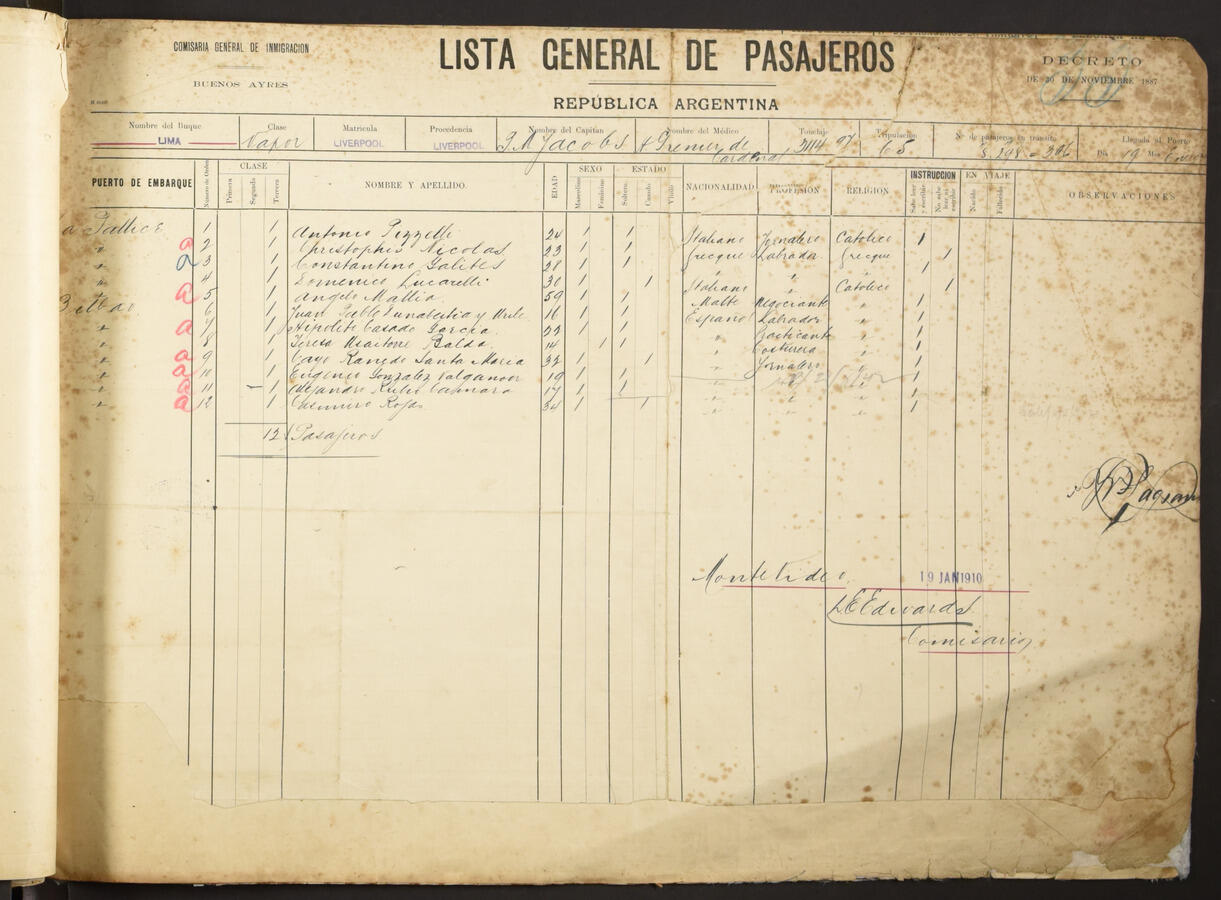 COMISARIA GENERAL DE INMIGRACION
BUENOS AYRES
LISTA GENERAL DE PASAJEROS
REPÚBLICA ARGENTINA
DECRETO
DE 30 DE NOVIEMBRE 1887
Nombre del Buque Clase Matrícula Procedencia Nombre del Capitan Nombre del Médico Tonelaje Tripulación N. de pasajeros en tránsito Llegada al Puerto
LIMA Vapor LIVERPOOL LIVERPOOL Jacobs 65 Dia 19 Mes Enero
PUERTO DE EMBARQUE Número de Orden CLASE Primera Segunda Tercera NOMBRE Y APELLIDO EDAD SEXO Masculino Femenino ESTADO Soltero Casado Viudo NACIONALIDAD PROFESIÓN RELIGIÓN INSTRUCCION Sabe leer y escribir No sabe leer ni escribir EN VIAJE Nacido Fallecido OBSERVACIONES
La Pallice 1 1 Antonio Pizzelli 24 1 1 Italiano Jornalero Católico 1
" a 2 1 Christophis Nicolas 23 1 1 Grecque Labrador Grecque 1
" a 3 1 Constantino Galites 28 1 1 " " " 1
" 4 1 Domenico Lucarelli 30 1 1 Italiano " Católico 1
" a 5 1 Angelo Mattia 59 1 1 Malte Negociante " 1
Bilbao 6 1 Juan Pablo 16 1 1 Español Labrador " 1
" a 7 1 Hipolito Casado Garcia 22 1 1 " Practicante " 1
" 8 1 Teresa Balda 14 1 1 " Costurera " 1
" a 9 1 Cayo Santa Maria 32 1 1 " Jornalero " 1
" a 10 1 Eugenio Gonzalez 19 1 1 " " 1
" a 11 1 Alejandro Rubio 17 1 1 " " " 1
" a 12 1 Casimiro Rojas 34 1 1 " " " 1
12 Pasajeros
Montevideo 19 JAN 1910
Edwards
Comisario